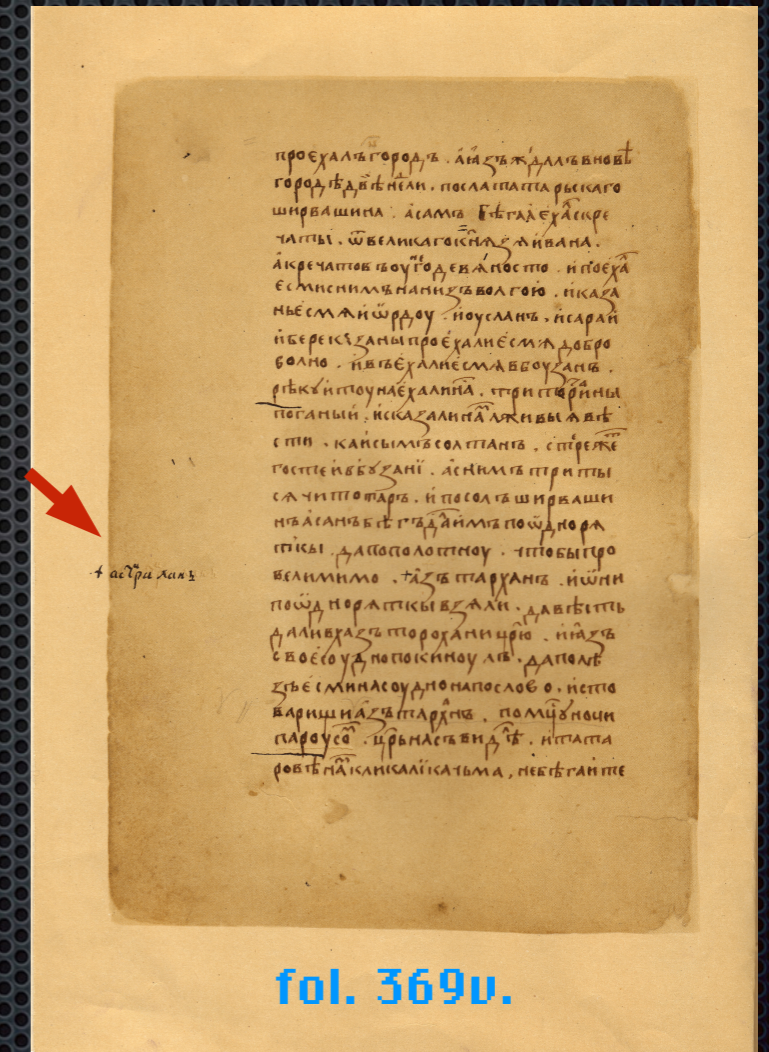 проехалъ городъ . а язъ ждалъ в нове
городѣ двѣ нели . посла татарьскаго
ширвашина . а самъ Бѣгалѣ хаскре
чаты . ѿ великаго князя ивана .
а кречатовъ оу него девяносто . и поеха
есми с нимъ на низъ волгою . и каза
нь есмя и ѿрдоу и оусланъ . и сарай
и берекѣзаны проехали есмя добро
волно . и въехали есмя в боузанъ .
рѣку и тоу наехали на . три тотарины
поганыи . и сказали нам лживыя вѣ
сти . каисымъ солтанъ . стереже
гостеи в бузанї . а с нимъ три ты
сячи тотаръ . и посолъ ширваши
нъ асанъбѣгъ далъ имъ по ѿднорят
ткы . да по полотноу . чтобы про
вели мимо . +азътарханъ . и ѿни
по ѿдноряткы взяли . да вѣсть
дали в хазъторохани црю . и язъ
свое соудно покиноулъ . да полѣ
зъ есми на соудно на послово . и с то
варищи азътарханъ . по мцу ночи
пароусо . црь насъ видѣ . и тата
ровѣ нам кликали качьма , не бѣгаите
+ астраханъ
fol. 369v.